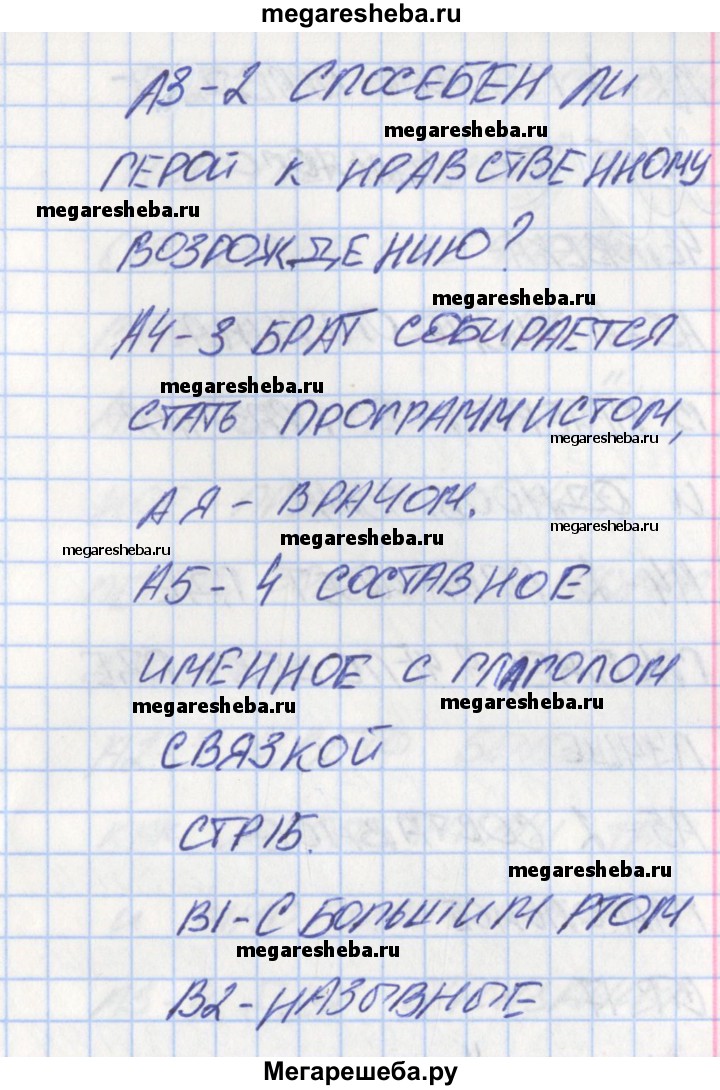 megaresheba.ru
А3-2 СПОСЕБЕН ЛИ
megaresheba.ru
ГЕРОЙ К НРАВСТВЕННОМУ
megaresheba.ru
ВОЗРОЖДЕНИЮ?
megaresheba.ru
А4-3 БРАТ СОБИРАЕТСЯ
megaresheba.ru
СТАТЬ ПРОГРАММИСТОМ,
megaresheba.ru
А Я - ВРАЧОМ.
megaresheba.ru
megaresheba.ru
megaresheba.ru
А5-4 СОСТАВНОЕ
ИМЕННОЕ С ГЛАГОЛОМ
megaresheba.ru
megaresheba.ru
СВЯЗКОЙ
СТР15.
megaresheba.ru
В1-С БОЛЬШИМ РТОМ
megaresheba.ru
В2-НАЗЫВНЫЕ
Мегарешеба.ру